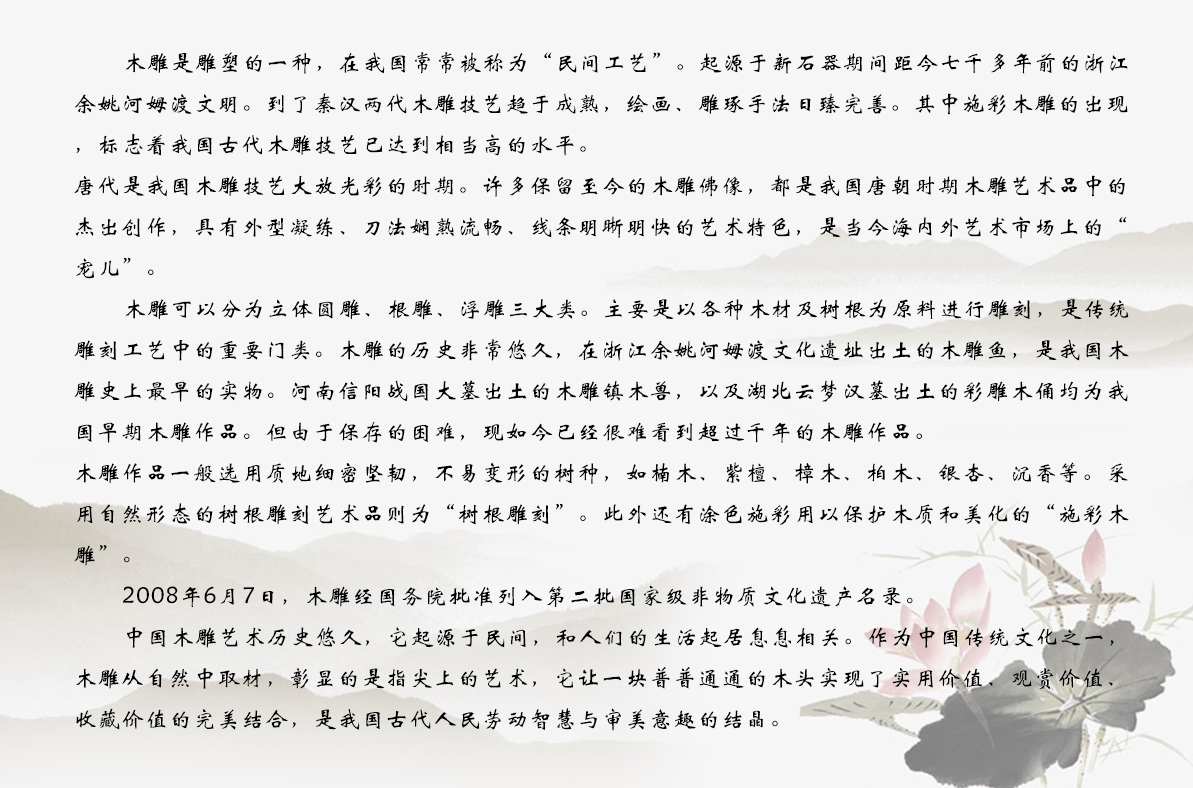 木雕是雕塑的一种，在我国常常被称为“民间工艺”。起源于新石器期间距今七千多年前的浙江
余姚河姆渡文明。到了秦汉两代木雕技艺趋于成熟，绘画、雕琢手法日臻完善。其中施彩木雕的出现
，标志着我国古代木雕技艺已达到相当高的水平。
唐代是我国木雕技艺大放光彩的时期。许多保留至今的木雕佛像，都是我国唐朝时期木雕艺术品中的
杰出创作，具有外型凝练、刀法娴熟流畅、线条明晰明快的艺术特色，是当今海内外艺术市场上的“
宠儿”。
木雕可以分为立体圆雕、根雕、浮雕三大类。主要是以各种木材及树根为原料进行雕刻，是传统
雕刻工艺中的重要门类。木雕的历史非常悠久，在浙江余姚河姆渡文化遗址出土的木雕鱼，是我国木
雕史上最早的实物。河南信阳战国大墓出土的木雕镇木兽，以及湖北云梦汉墓出土的彩雕木俑均为我
国早期木雕作品。但由于保存的困难，现如今已经很难看到超过千年的木雕作品。
木雕作品一般选用质地细密坚韧，不易变形的树种，如楠木、紫檀、樟木、柏木、银杏、沉香等。采
用自然形态的树根雕刻艺术品则为“树根雕刻”。此外还有涂色施彩用以保护木质和美化的“施彩木
雕”。
2008年6月7日，木雕经国务院批准列入第二批国家级非物质文化遗产名录。
中国木雕艺术历史悠久，它起源于民间，和人们的生活起居息息相关。作为中国传统文化之一，
木雕从自然中取材，彰显的是指尖上的艺术，它让一块普普通通的木头实现了实用价值、观赏价值、
收藏价值的完美结合，是我国古代人民劳动智慧与审美意趣的结晶。